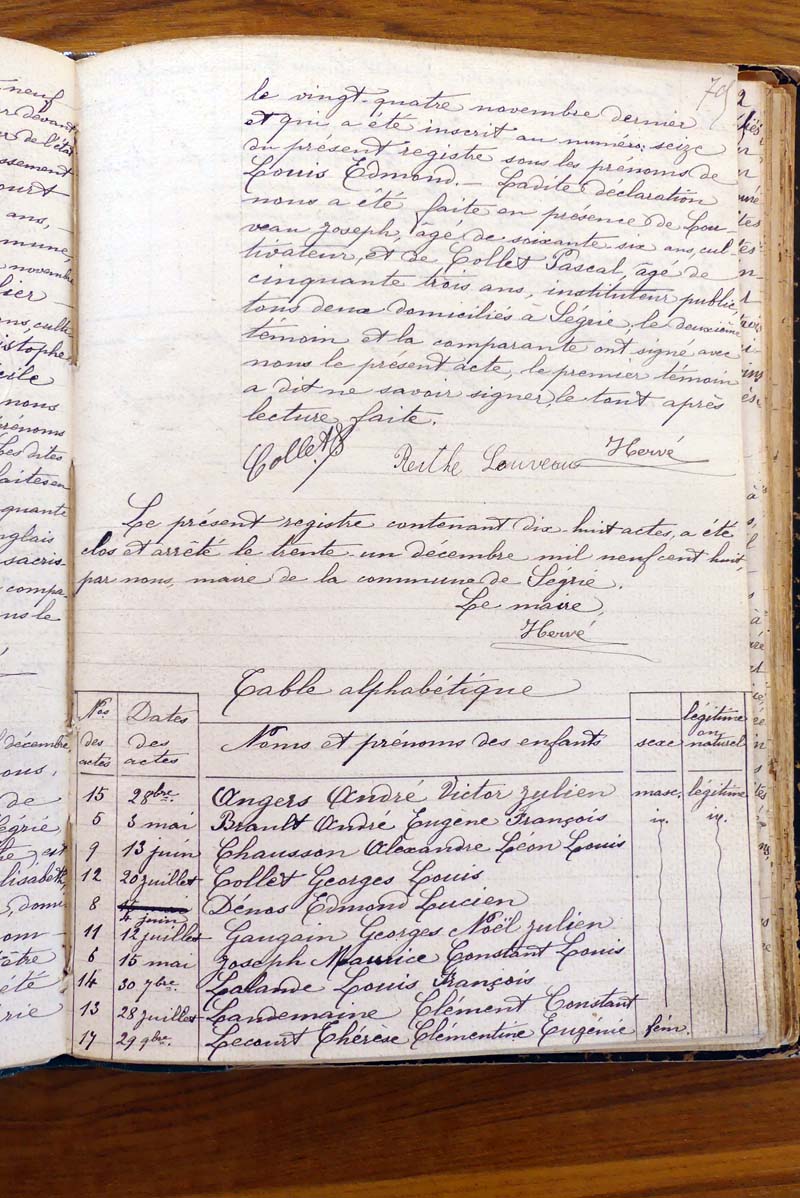 neuf
devant
de l'état
issement
ourt
ans, —
mmune,
novembre
lier —
ans, culti-
istophe
icile
nous
prénoms
Les dites
faites en
quante
nglais
sacris-
compa-
ns le
décembre
ous,
de
Ségrie
est
lisabeth,
domi-
om-
être
été
rie
79
2
le vingt-quatre novembre dernier
et qui a été inscrit au numéro seize
du présent registre sous les prénoms de
Louis Edmond. — Ladite déclaration
nous a été faite en présence de Lou-
veau Joseph, âgé de soixante six ans, cul-
tivateur, et de Collet Pascal, âgé de
cinquante trois ans, instituteur public,
tous deux domiciliés à Ségrie, le deuxième
témoin et la comparante ont signé avec
nous le présent acte, le premier témoin
a dit ne savoir signer, le tout après
lecture faite.
Collet Berthe Louveau Hervé
Le présent registre contenant dix huit actes, a été
clos et arrêté le trente-un décembre mil neuf cent huit,
par nous, maire de la commune de Ségrie.
Le maire,
Hervé
Table alphabétique
Nos des actes Dates des actes Noms et prénoms des enfants sexe légitime ou naturel
15 28bre. Angers André Victor Julien masc. légitime
5 3 mai Brault André Eugène François id. id.
9 13 juin Chausson Alexandre Léon Louis
12 20 juillet Collet Georges Louis
8 4 juin Dénos Edmond Lucien
11 12 juillet Gaugain Georges Noël Julien
6 15 mai Joseph Maurice Constant Louis
14 30 7bre. Lalande Louis François
13 28 juillet Landemaine Clément Constant
17 29 9bre. Lecourt Thérèse Clémentine Eugénie fém.